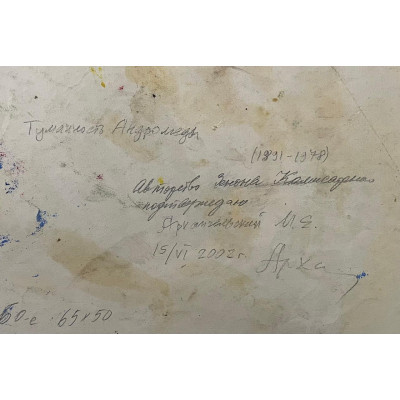 Туманность Андромеды
(1891-1978)
Авторство Зенона Комиссаренко
подтверждаю
Архангельский И. Е.
15/VI 2002 г. Арха
50-е 65х50